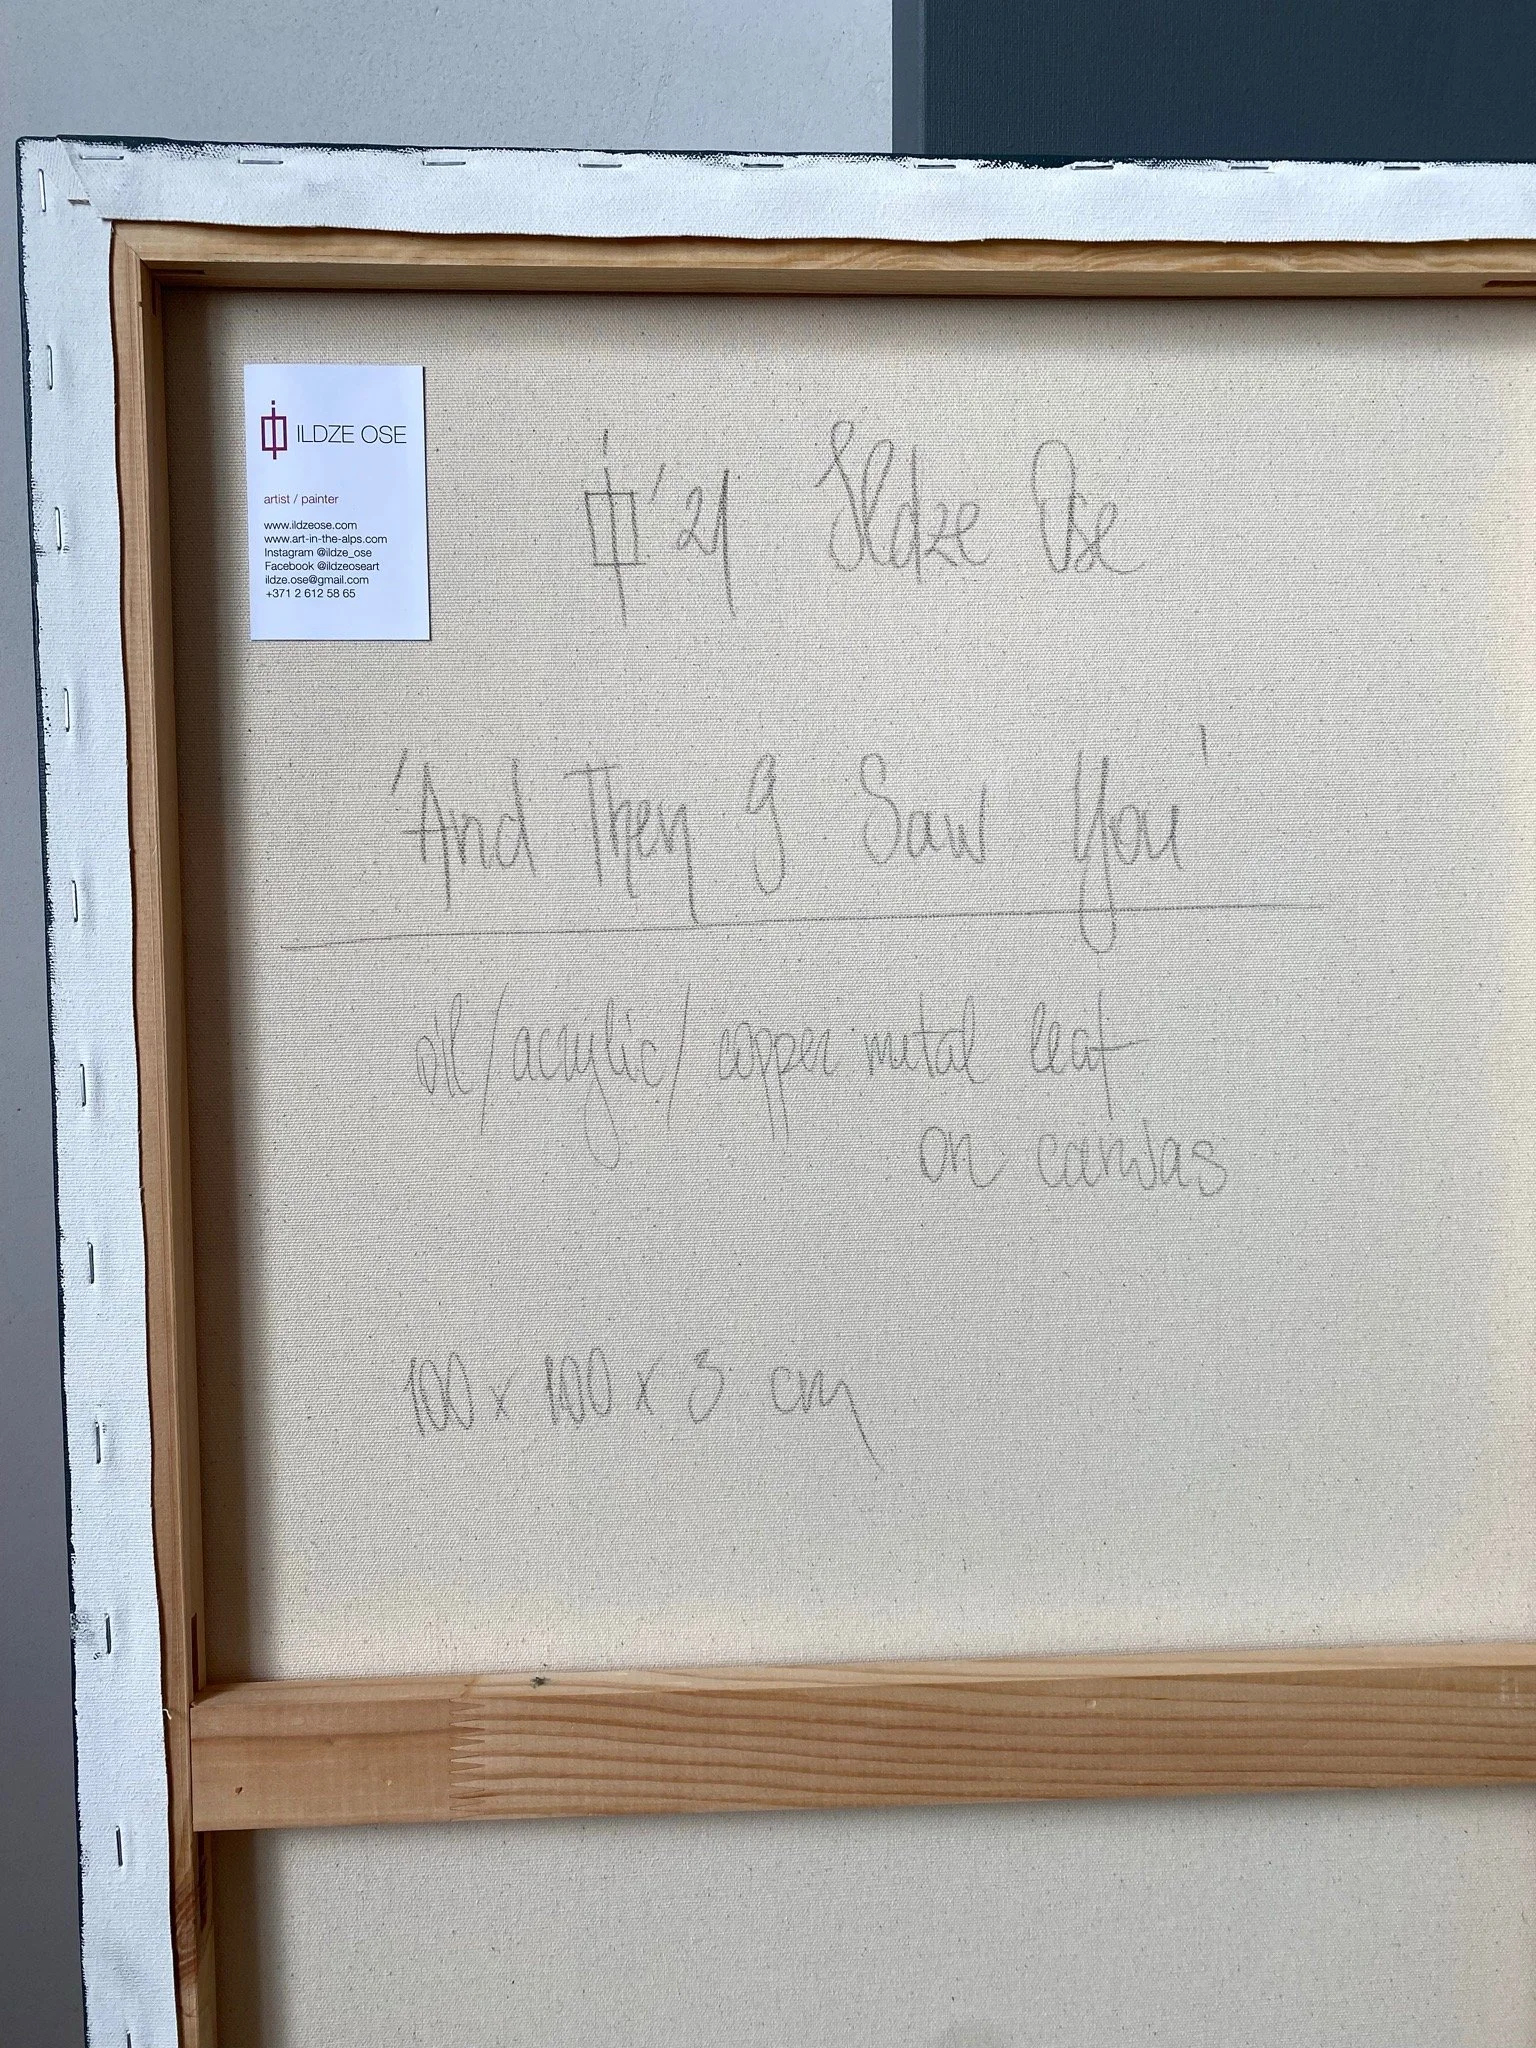 ILDZE OSE
artist / painter
www.ildzeose.com
www.art-in-the-alps.com
Instagram @ildze_ose
Facebook @ildzeoseart
ildze.ose@gmail.com
+371 2 612 58 65
'21 Ildze Ose
'And Then I Saw You'
oil/acrylic/copper metal leaf
on canvas
100 x 100 x 3 cm